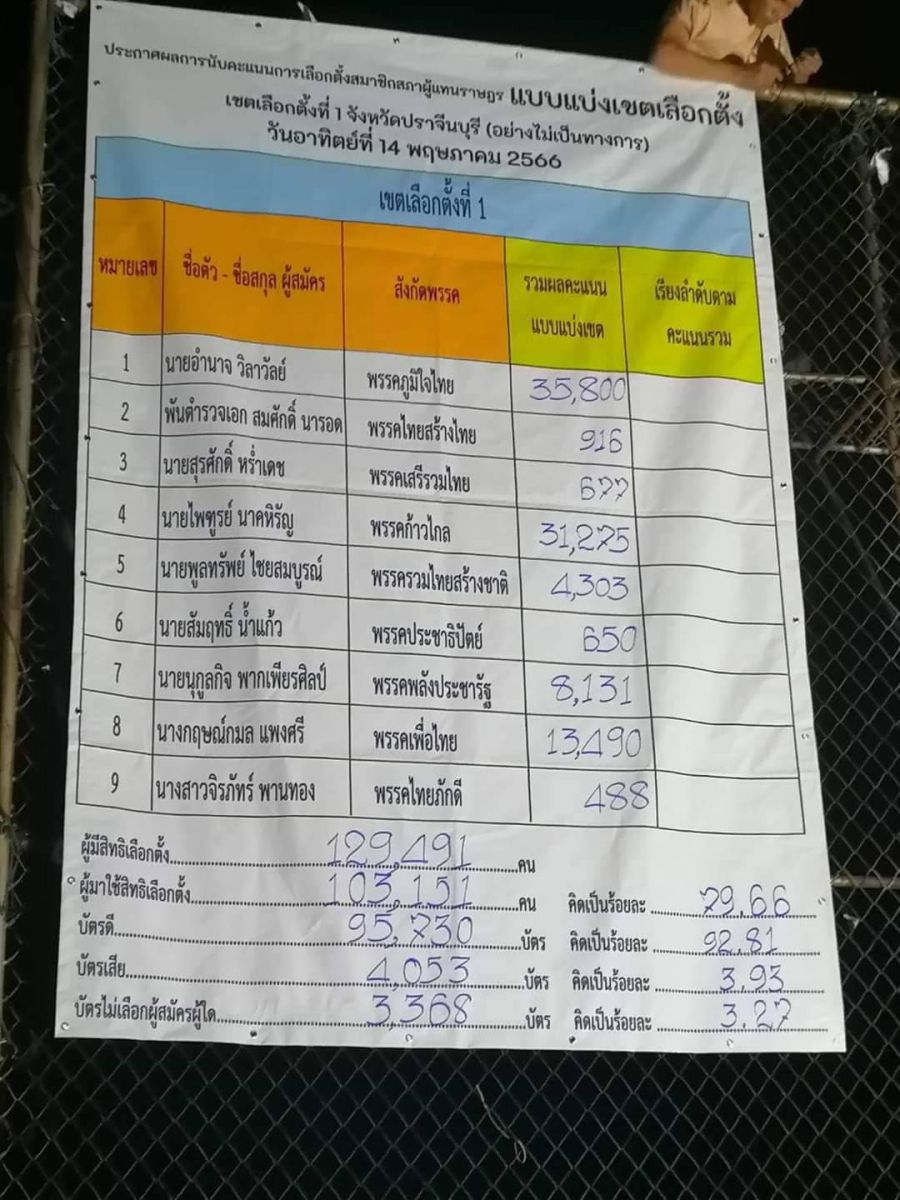 ประกาศผลการนับคะแนนการเลือกตั้งสมาชิกสภาผู้แทนราษฎร แบบแบ่งเขตเลือกตั้ง
เขตเลือกตั้งที่ 1 จังหวัดปราจีนบุรี (อย่างไม่เป็นทางการ)
วันอาทิตย์ที่ 14 พฤษภาคม 2566
เขตเลือกตั้งที่ 1
หมายเลข ชื่อตัว - ชื่อสกุล ผู้สมัคร สังกัดพรรค รวมผลคะแนน แบบแบ่งเขต เรียงลำดับตาม คะแนนรวม
1 นายอำนาจ วิลาวัลย์ พรรคภูมิใจไทย 35,800
2 พันตำรวจเอก สมศักดิ์ นารอด พรรคไทยสร้างไทย 916
3 นายสุรศักดิ์ หร่ำเดช พรรคเสรีรวมไทย 677
4 นายไพฑูรย์ นาคหิรัญ พรรคก้าวไกล 31,275
5 นายพูลทรัพย์ ไชยสมบูรณ์ พรรครวมไทยสร้างชาติ 4,303
6 นายสัมฤทธิ์ น้ำแก้ว พรรคประชาธิปัตย์ 650
7 นายนุกูลกิจ พากเพียรศิลป์ พรรคพลังประชารัฐ 8,131
8 นางกฤษณ์กมล แพงศรี พรรคเพื่อไทย 13,490
9 นางสาวจิรภัทร์ พานทอง พรรคไทยภักดี 488
ผู้มีสิทธิเลือกตั้ง 129,491 คน
ผู้มาใช้สิทธิเลือกตั้ง 103,151 คน คิดเป็นร้อยละ 79.66
บัตรดี 95,730 บัตร คิดเป็นร้อยละ 92.81
บัตรเสีย 4,053 บัตร คิดเป็นร้อยละ 3.93
บัตรไม่เลือกผู้สมัครผู้ใด 3,368 บัตร คิดเป็นร้อยละ 3.27